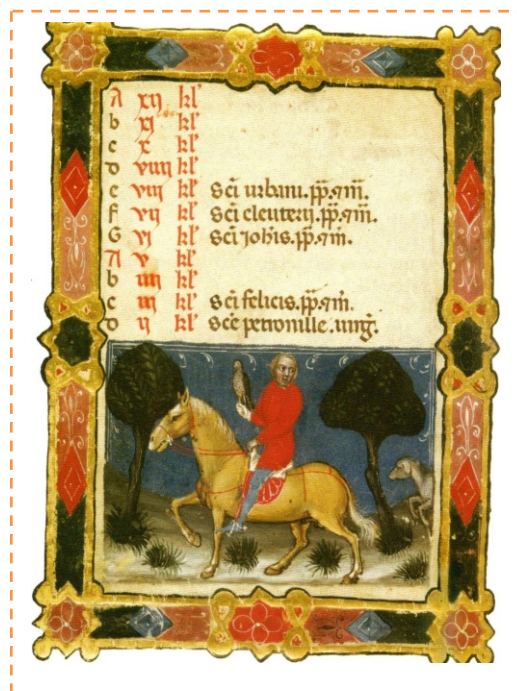 A xij kl'
b xj kl'
c x kl'
d viiij kl'
e viij kl' Sc̄i urbani. pp̄. ⁊ m̄.
f vij kl' Sc̄i eleuterij. pp̄. ⁊ m̄.
G vj kl' Sc̄i Joh̄is. pp̄. ⁊ m̄.
A v kl'
b iiij kl'
c iij kl' Sc̄i felicis. pp̄. ⁊ m̄.
d ij kl' Sc̄e petronille. uirḡ.